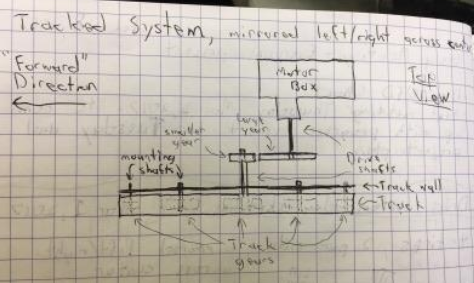 Tracked System, mirrored left/right across
"Forward"
Direction
Motor
Box
Top
View
smaller
gear
large
gear
mounting
shafts
Drive
shafts
Track wall
Track
Track
gears